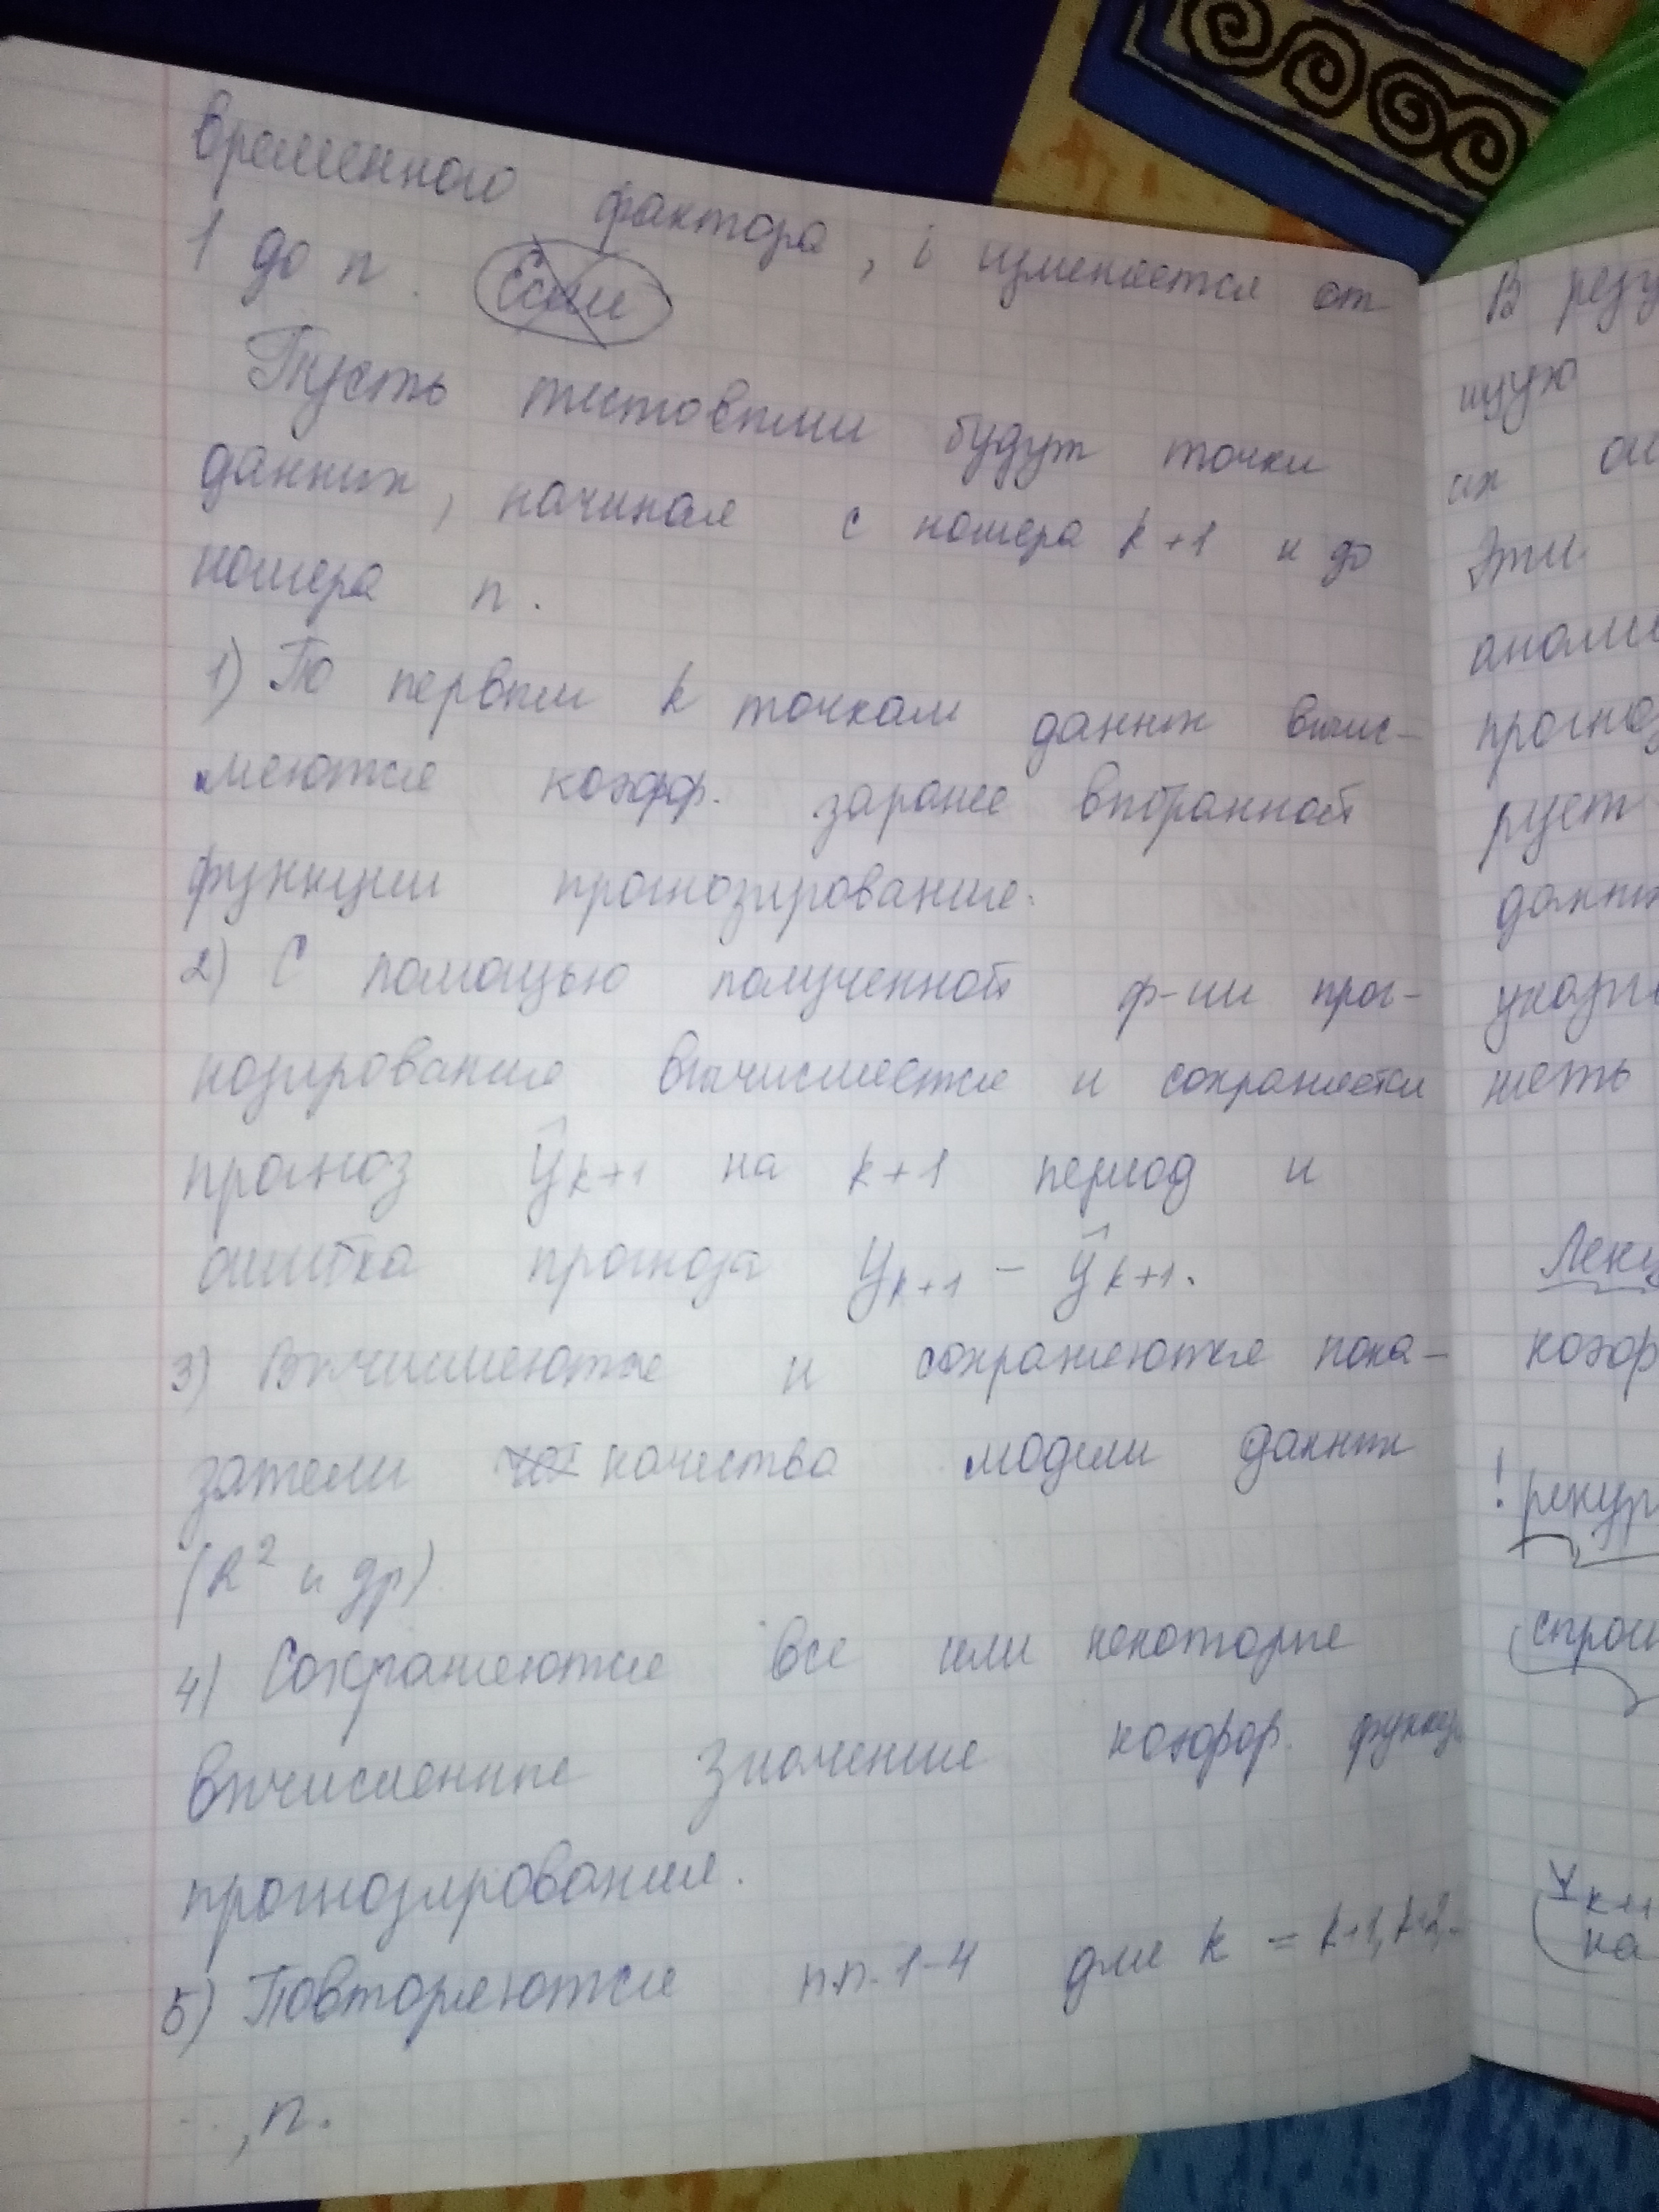 временного фактора, i изменяется от
1 до n. Если
Пусть тестовыми будут точки
данных, начиная с номера k+1 и до
номера n.
1) По первым k точкам данных вычис-
ляются коэфф. заранее выбранной
функции прогнозирования.
2) С помощью полученной ф-ии прог-
нозирования вычисляется и сохраняется
прогноз ŷk+1 на k+1 период и
ошибка прогноза yk+1 - ŷk+1.
3) Вычисляются и сохраняются пока-
затели качества модели данных
(R² и др)
4) Сохраняются все или некоторые
вычисленные значения коэфф. функци
прогнозирования.
5) Повторяются п.п. 1-4 для k = k+1, k+2, ..
.., n.
В резу
щую
их
Эти
анали
прогноз
рует
данны
указы
нять
Лекц
коэф
! рекур
на